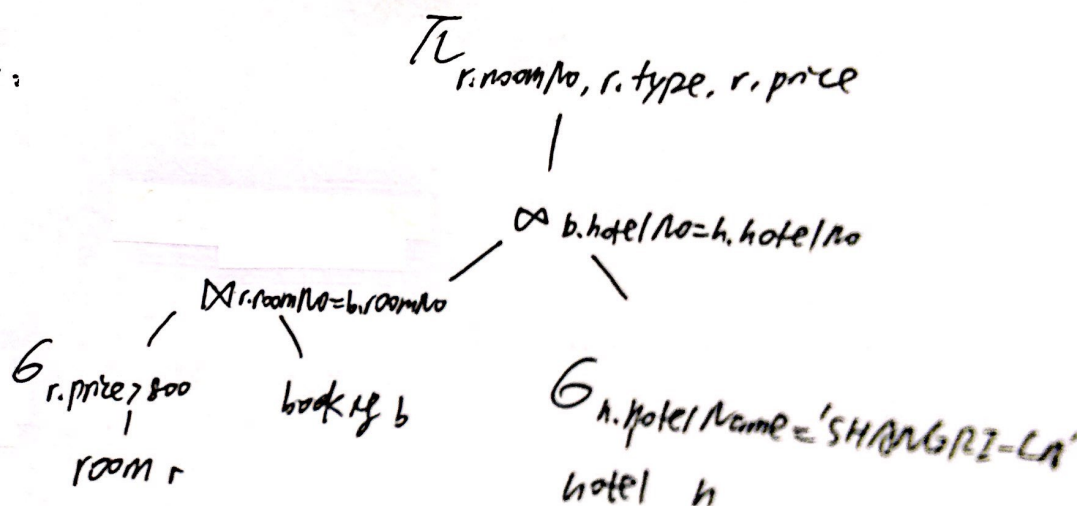 π r.roomNo, r.type, r.price
⋈ b.hotelNo=h.hotelNo
⋈ r.roomNo=b.roomNo
σ r.price>800
booking b
σ h.HotelName='SHANGRI-LA'
room r
hotel h